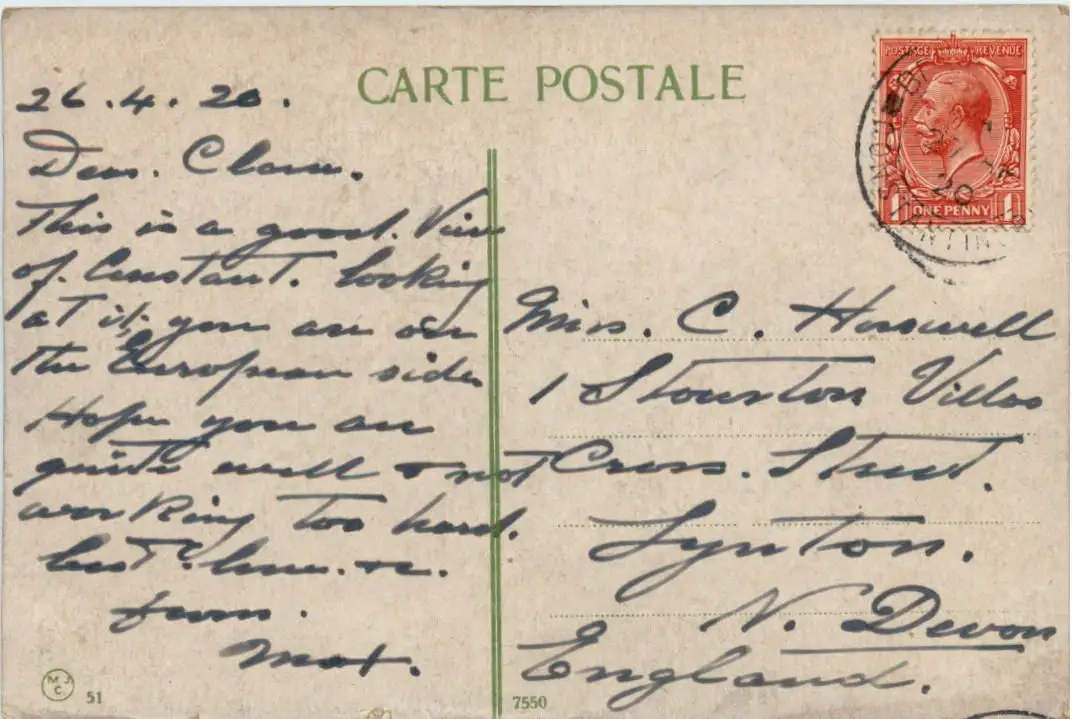 CARTE POSTALE
26.4.20.
Dear. Clara.
This is a good. View
of. Constant. Looking
at it. you are on
the European side
Hope you are
quite well & not
working too hard.
best. love. &c.
from.
Max.
M J C
51
7550
POSTAGE REVENUE
1 ONE PENNY 1
20
Miss. C. Horswell
1 Stourton Villas
Cross. Street.
Lynton.
N. Devon
England.